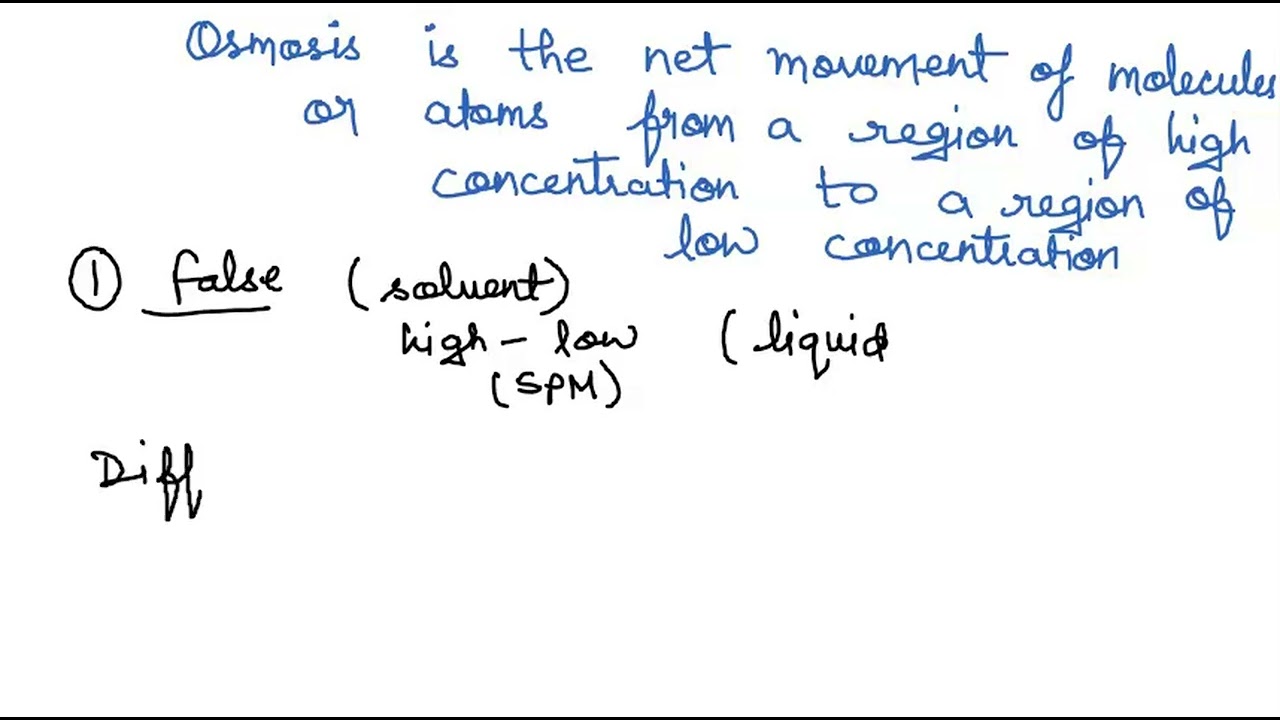 Osmosis is the net movement of molecules
or atoms from a region of high
concentration to a region of
low concentration
① false (solvent)
high - low (liquid
(SPM)
Diff